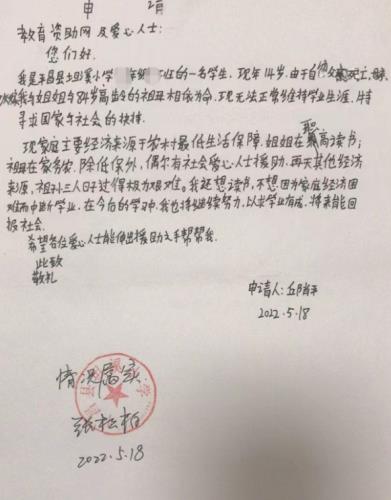 申 请
教育资助网及爱心人士:
您们好,
我是 县 溪小学 年级 班的一名学生,现年14岁,由于自幼父 死亡,母亲
我与姐姐与84岁高龄的祖母相依为命,现无法正常维持学业生涯,特
寻求国家与社会的扶持。
现家庭主要经济来源于农村最低生活保障,姐姐在职高读书;
祖母在家务农,除低保外,偶尔有社会爱心人士援助,再无其他经济
来源,祖孙三人日子过得极为艰难。我超想读书,不想因为家庭经济困
难而中断学业,在今后的学习中,我也将继续努力,以求学业有成,将来能回
报社会。
希望各位爱心人士能伸出援助之手帮帮我。
此致
敬礼
申请人:邱
2022.5.18
情况属实
张松柏
2022.5.18